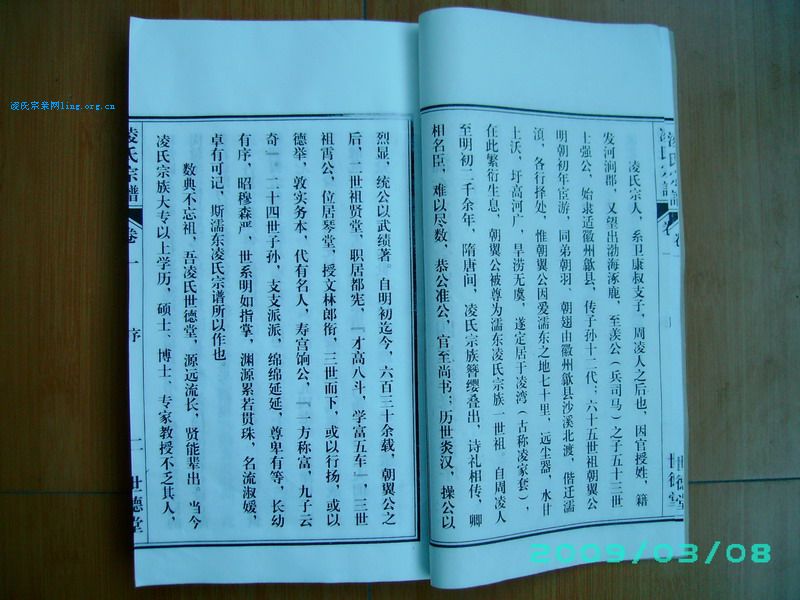 凌氏宗亲网ling.org.cn
凌氏宗谱
凌氏宗人，系卫康叔支子，周凌人之后也，因官授姓，籍
发河涧郡，又望出渤海涿鹿，至羡公（兵司马）之子五十三世
上强公，始隶迨徽州歙县，传子孙十二代；六十五世祖朝翼公
明朝初年宦游，同弟朝羽、朝翅由徽州歙县沙溪北渡，偕迁濡
须，各行择处，惟朝翼公因爱濡东之地七十里，远尘嚣，水甘
土沃，圩高河广，旱涝无虞，遂定居于凌湾（古称凌家套），
在此繁衍生息，朝翼公被尊为濡东凌氏宗族一世祖，自周凌人
至明初二千余年，隋唐间，凌氏宗族簪缨叠出，诗礼相传，卿
相名臣，难以尽数，恭公准公，官至尚书；历世炎汉，操公以
世德堂
烈显，统公以武绩著。自明初迄今，六百三十余载，朝翼公之
后，二世祖贤堂，职居都宪，『才高八斗，学富五车』，三世
祖霄公，位居琴堂，授文林郎衔，三世而下，或以行扬，或以
德举，敦实务本，代有名人，寿宫饷公，『一方称富，九子云
奇』，二十四世子孙，支支派派，绵绵延延，尊卑有等，长幼
有序，昭穆森严，世系明如指掌，渊源累若贯珠，名流淑媛，
卓有可记，斯濡东凌氏宗谱所以作也
数典不忘祖，吾凌氏世德堂，源远流长，贤能辈出。当今
凌氏宗族大专以上学历，硕士、博士、专家教授不乏其人，
凌氏宗谱 卷一 序 二 世德堂
2009/03/08